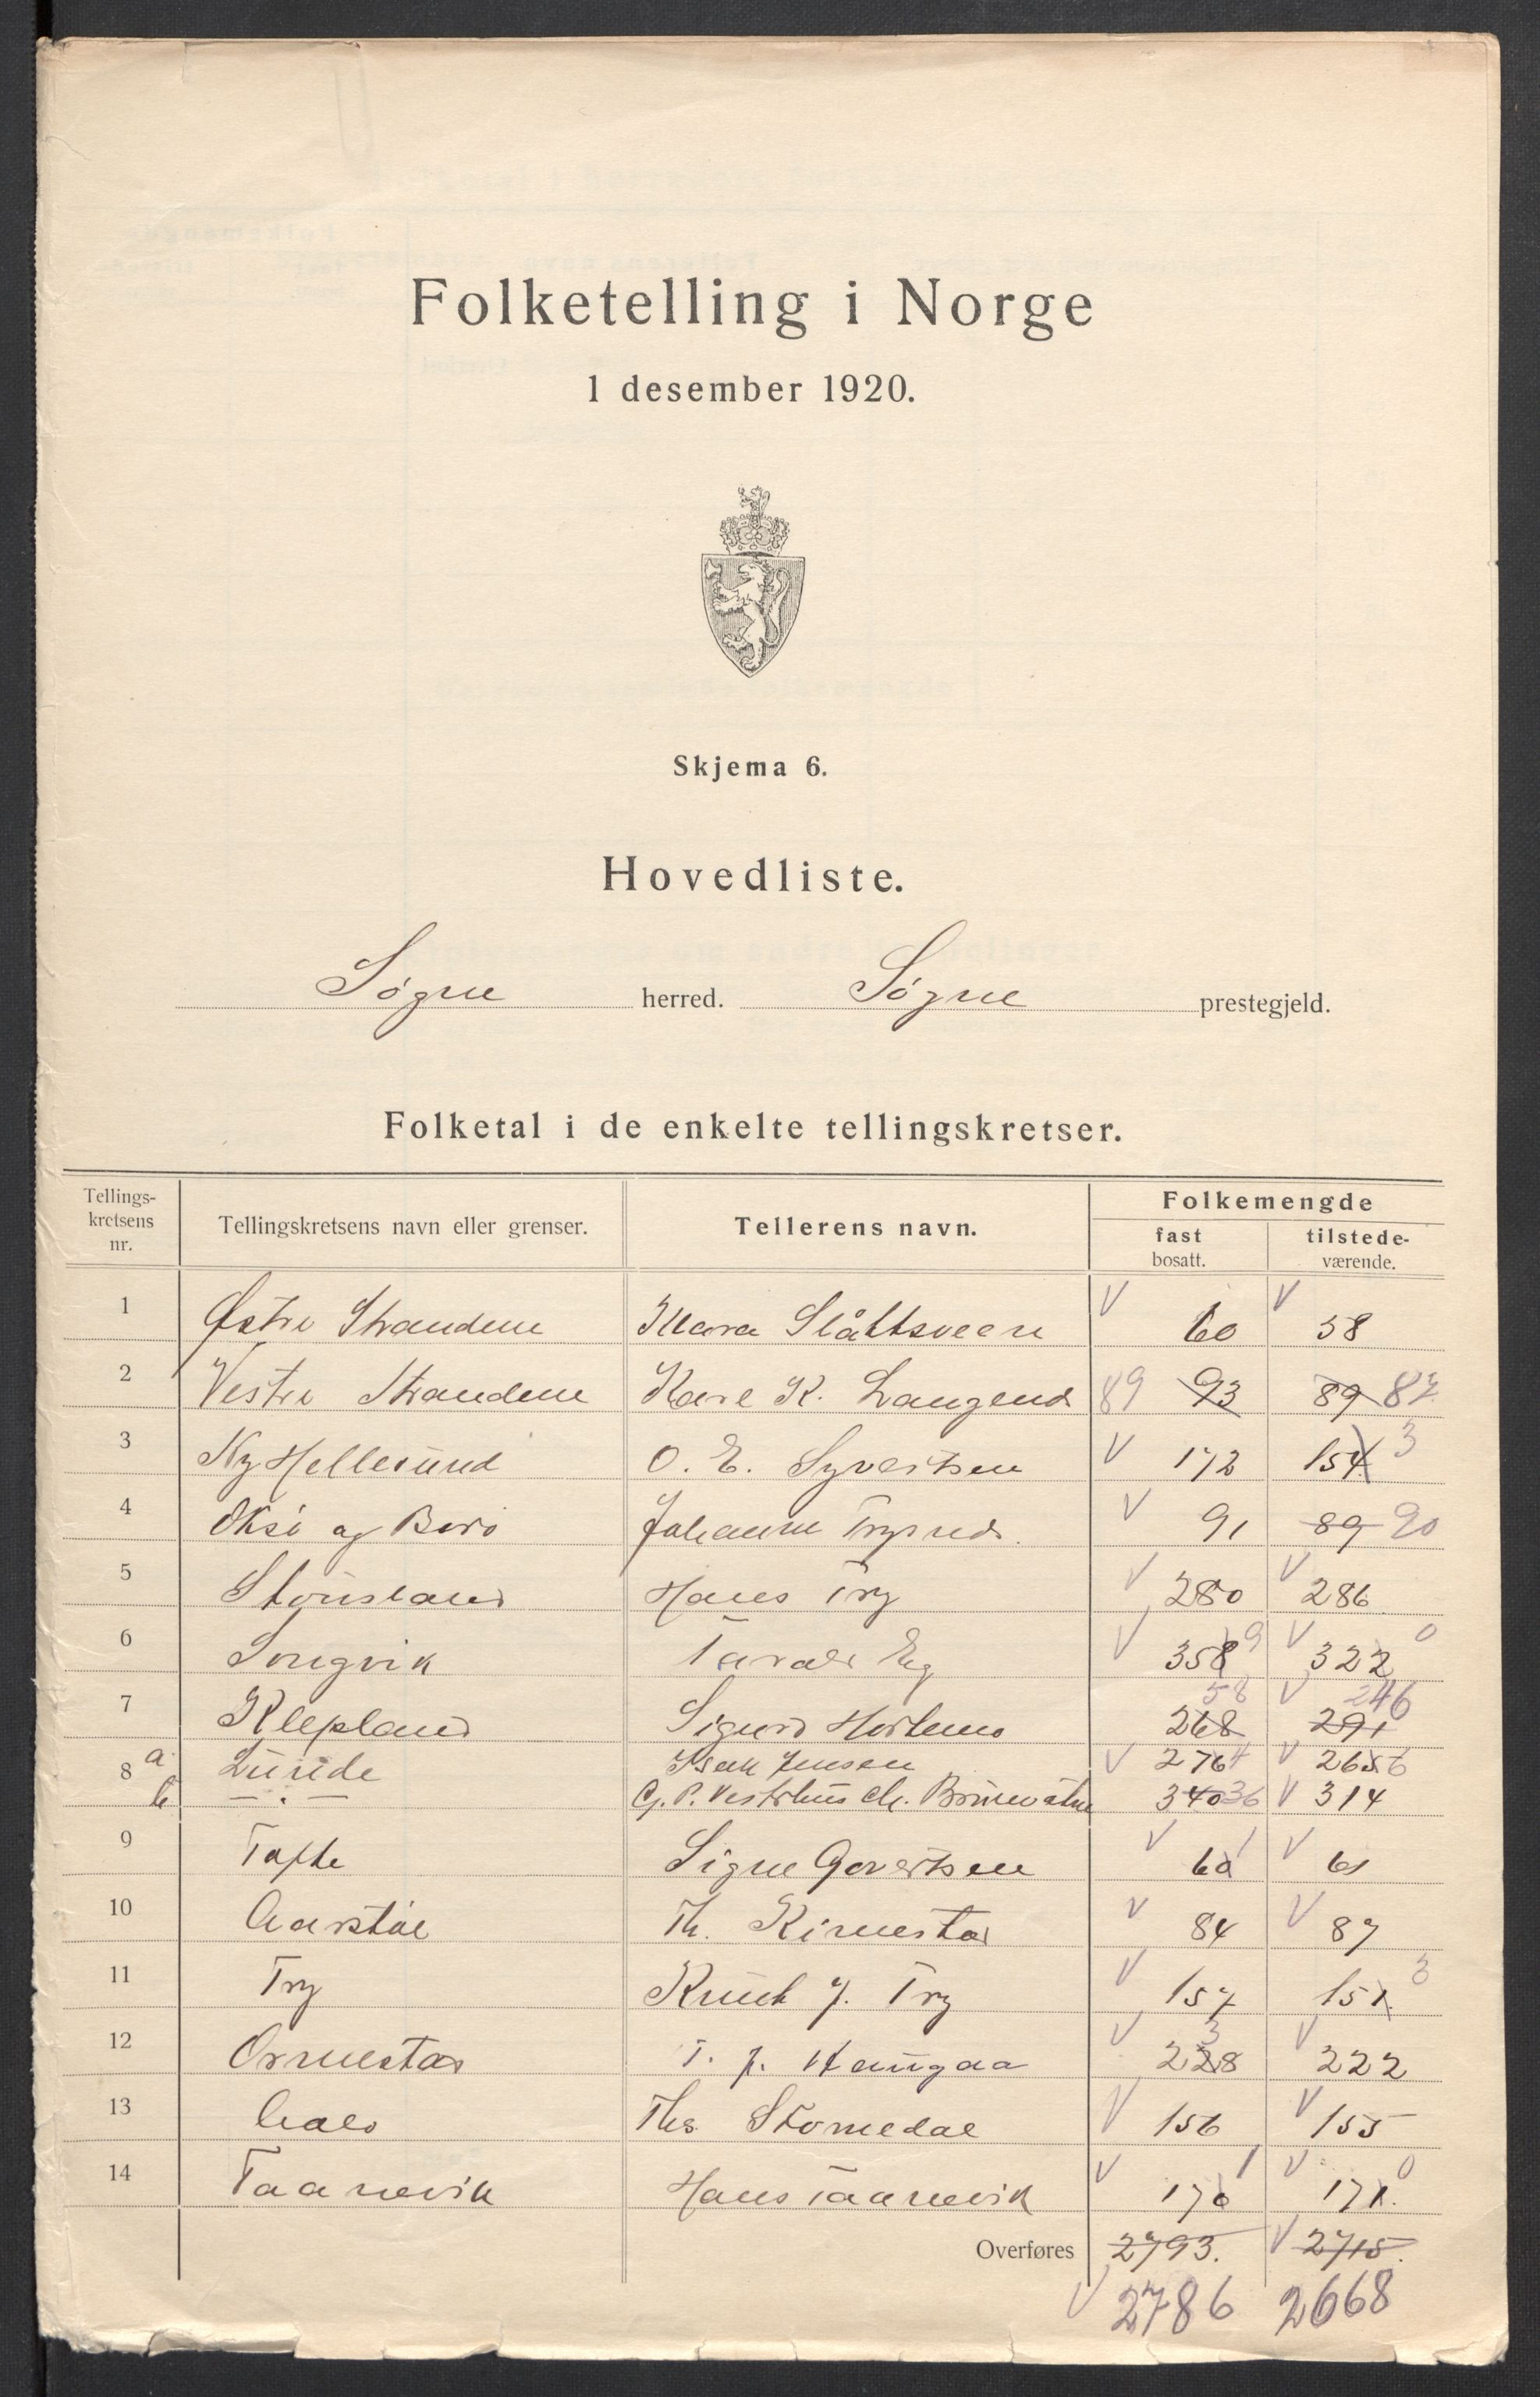 Folketelling i Norge
1 desember 1920.
Skjema 6.
Hovedliste.
Søgne herred. Søgne prestegjeld.
Folketal i de enkelte tellingskretser.
Tellings-kretsens nr. Tellingskretsens navn eller grenser. Tellerens navn. Folkemengde
fast bosatt. tilstede-værende.
1 Østre Strandene Klara Slåttsveen V 60 V 58
2 Vestre Strandene Kare K. Langenes 89 93 89 87
3 Ny Hellesund O. E. Syvertsen V 172 154 3
4 Oksø og Borø Johanne Trysnes. V 91 89 90
5 Stousland Hans Try V 280 V 286
6 Songvik Tarald Eeg V 358 9 V 322 0
7 Klepland Sigurd Hortemo 268 58 V 291 246
8 a. Lunde Isak Jensen V 276 4 V 265 6
b — . — G. P. Vestrhus Chr. Brunvatne 340 36 V 314
9 Tofte Signe Govertsen V 60 1 V 61
10 Aarstøl Th. Kirnestad V 84 V 87
11 Try Knut J. Try V 157 151 3
12 Ormestad T. J. Haugaa V 228 3 V 222
13 Aalo Ths. Stomedal V 156 V 155
14 Taanevik Hans Taanevik V 170 1 V 171. 0
Overføres 2793. V 2715.
V 2786 2668